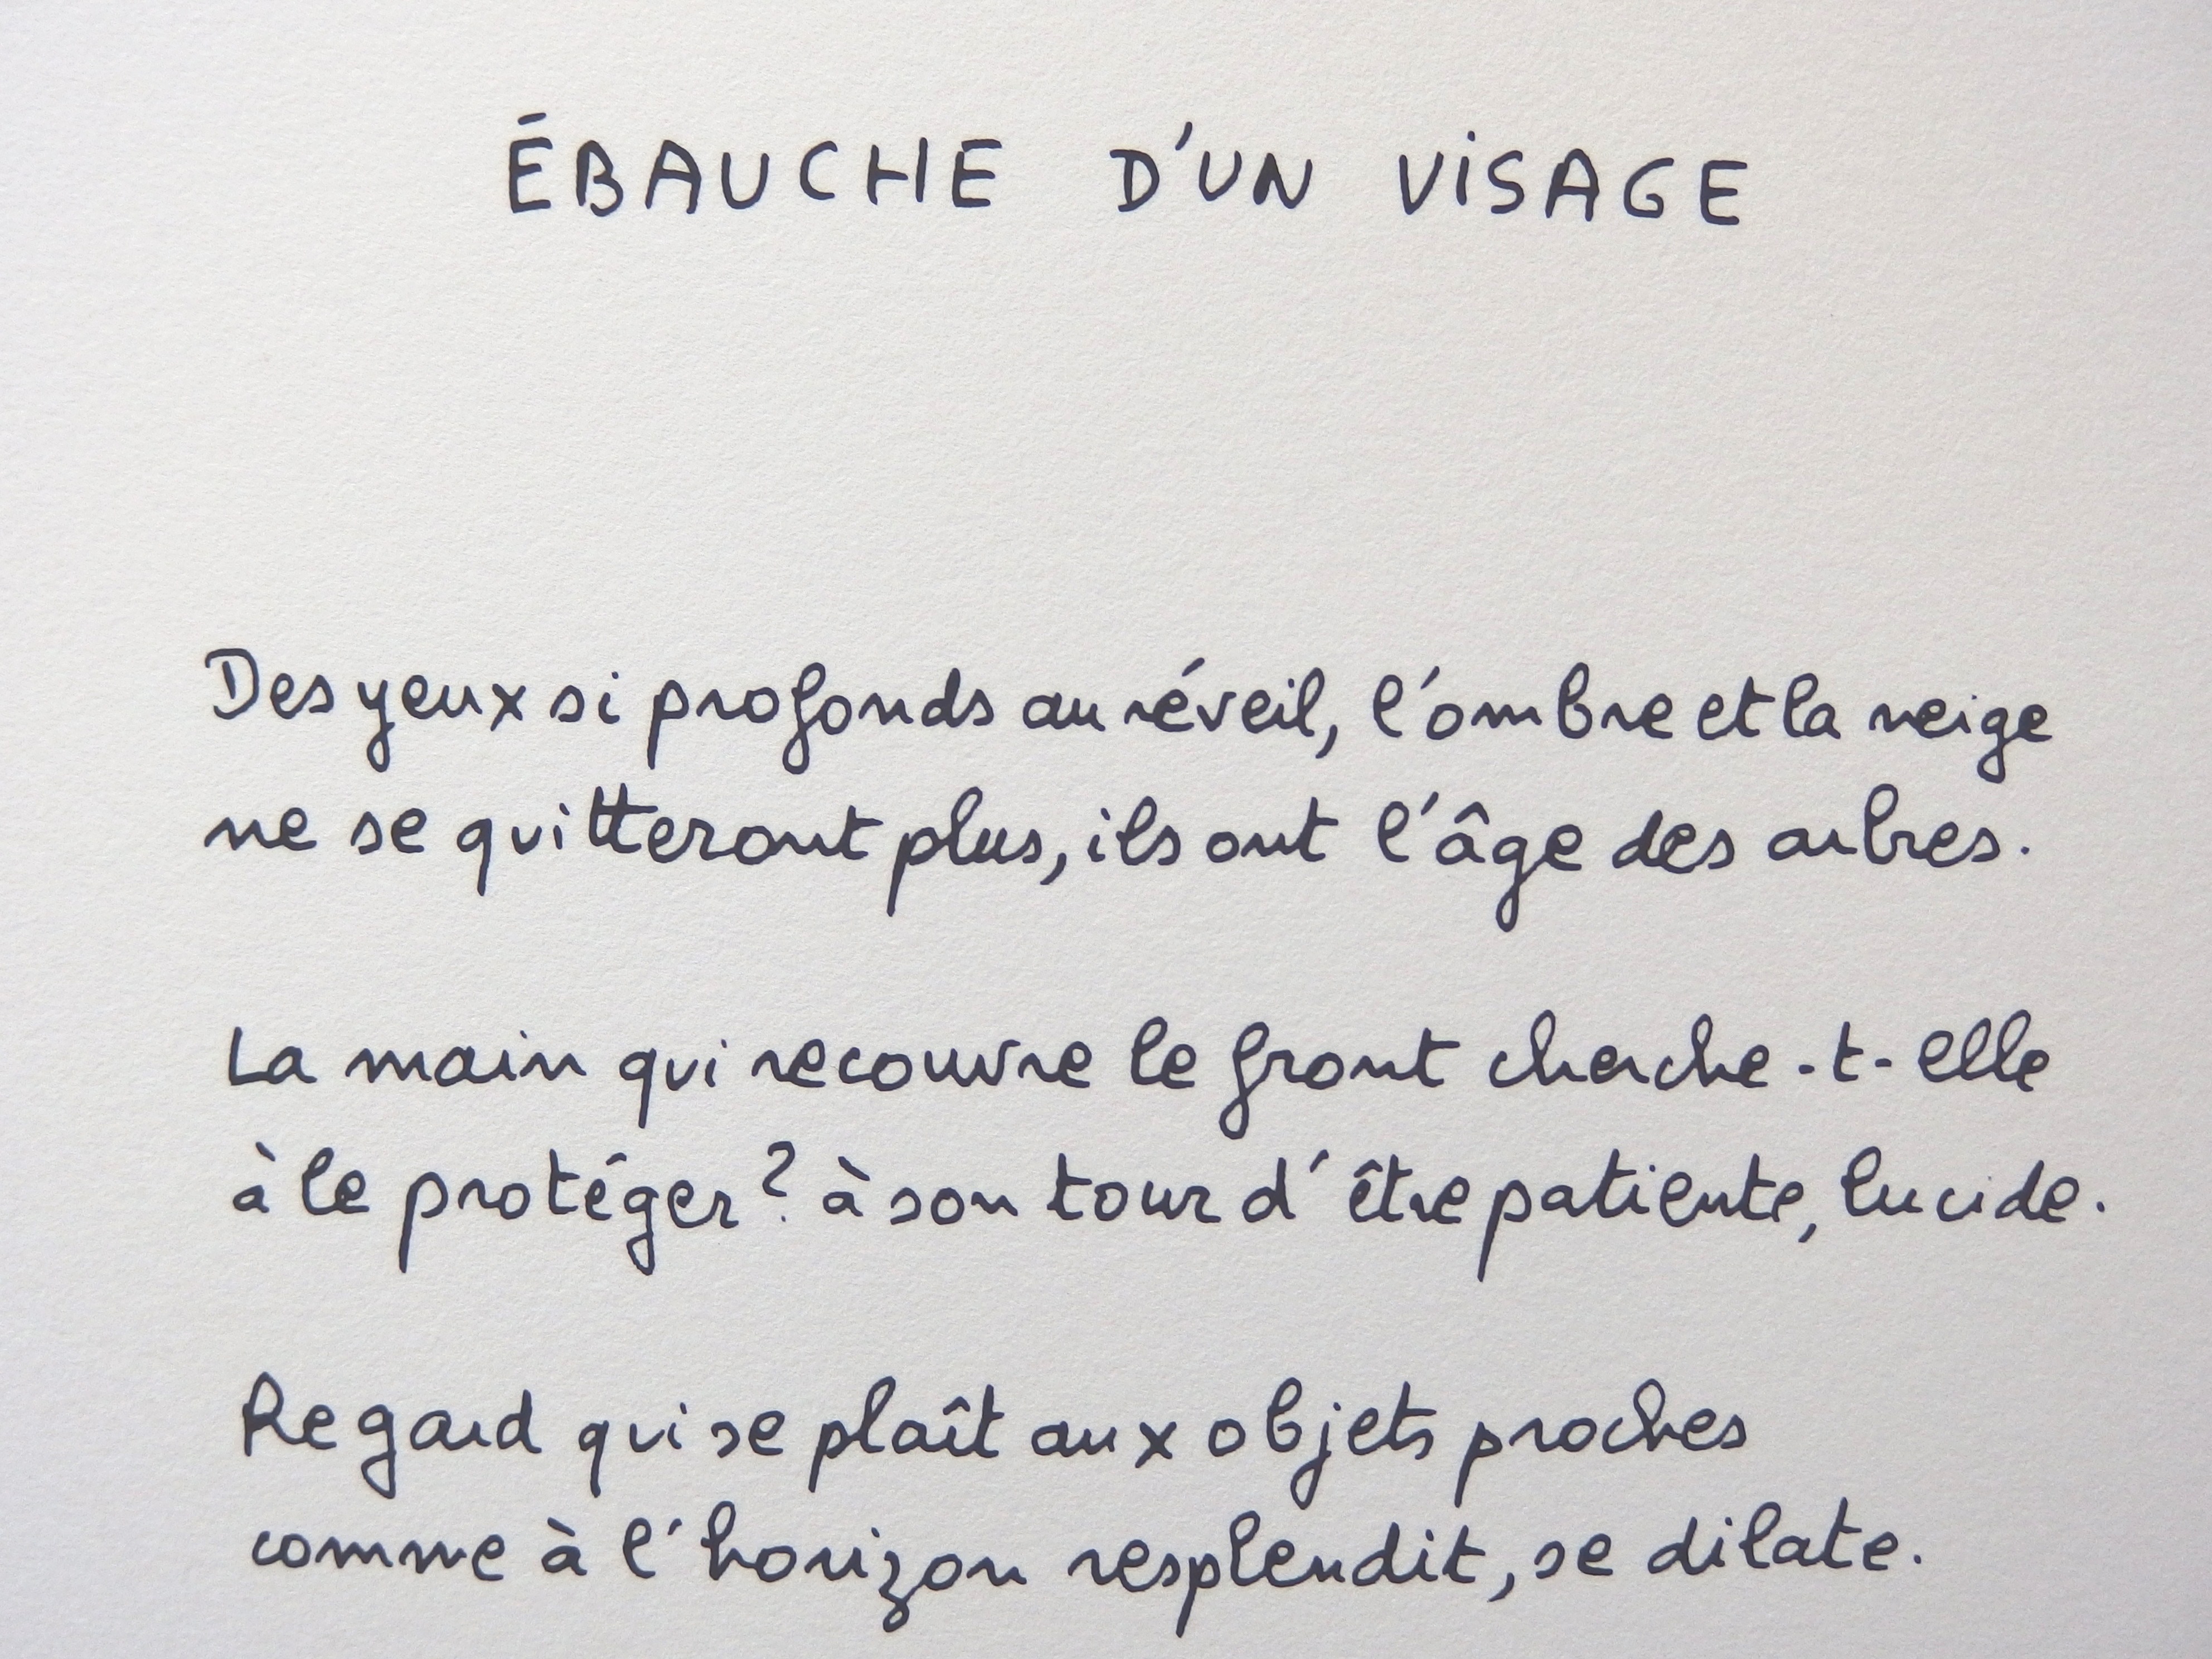 ÉBAUCHE D'UN VISAGE
Des yeux si profonds au réveil, l'ombre et la neige
ne se quitteront plus, ils ont l'âge des arbres.
La main qui recouvre le front cherche-t-elle
à le protéger? à son tour d'être patiente, lucide.
Regard qui se plaît aux objets proches
comme à l'horizon resplendit, se dilate.